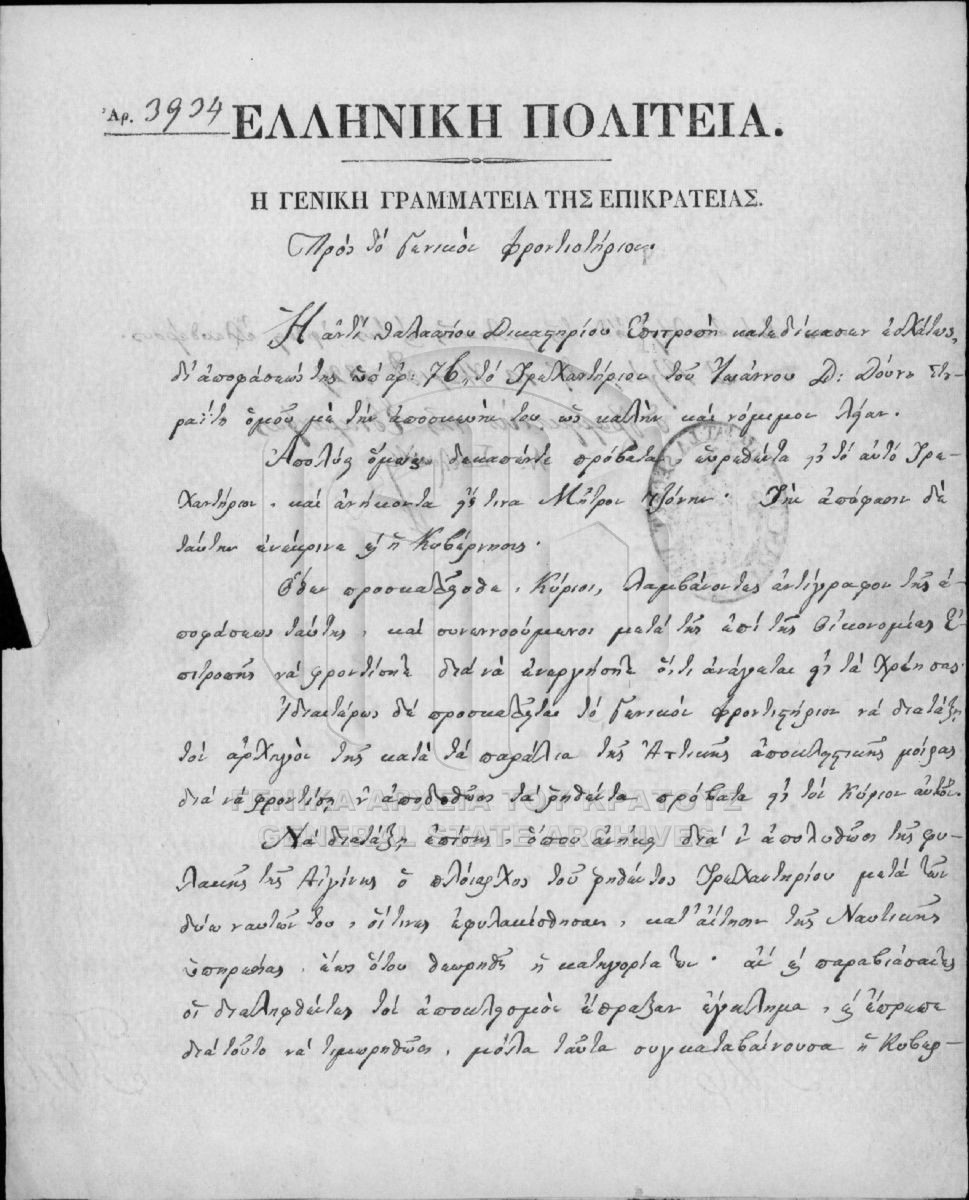 Ἀρ. 3934
ΕΛΛΗΝΙΚΗ ΠΟΛΙΤΕΙΑ.
Η ΓΕΝΙΚΗ ΓΡΑΜΜΑΤΕΙΑ ΤΗΣ ΕΠΙΚΡΑΤΕΙΑΣ.
Πρὸς τὸ Γενικὸν Φροντιστήριον.
Ἡ ἀντὶ Θαλασσίου Δικαστηρίου Ἐπιτροπὴ κατεδίκασεν ἐσχάτως,
δι' ἀποφάσεώς της ὑπὸ ἀρ: 76, τὸ Τρεχαντήριον τοῦ Ἰωάννου Δ:
ὁμοῦ μὲ τὴν ἀποσκευήν του ὡς καλὴν καὶ νόμιμον λείαν.
Ἀπολύει ὅμως δεκαπέντε πρόβατα, εὑρεθέντα εἰς τὸ αὐτὸ Τρε-
χαντήριον, καὶ ἀνήκοντα εἴς τινα Μῆτρον Τζόνην. Τὴν ἀπόφασιν δὲ
ταύτην ἐνέκρινε καὶ ἡ Κυβέρνησις.
Ὅθεν προσκαλεῖσθε, Κύριοι, λαμβάνοντες ἀντίγραφον τῆς ἀ-
ποφάσεως ταύτης, καὶ συνεννοούμενοι μετὰ τῆς ἐπὶ τῆς Οἰκονομίας Ἐ-
πιτροπῆς νὰ φροντίσητε διὰ νὰ ἐνεργήσητε ὅ,τι ἀνάγεται εἰς τὰ χρέη σας.
Ἰδιαιτέρως δὲ προσκαλεῖται τὸ Γενικὸν Φροντιστήριον νὰ διατάξῃ
τὸν ἀρχηγὸν τῆς κατὰ τὰ παράλια τῆς Ἀττικῆς ἀποκλειστικῆς μοίρας
διὰ νὰ φροντίσῃ ν' ἀποδοθῶσι τὰ ῥηθέντα πρόβατα εἰς τὸν Κύριον αὐτῶν.
Νὰ διατάξῃ ἐπίσης, ὅπου ἀνήκει διὰ ν' ἀπολυθῶσι τῆς φυ-
λακῆς τῆς Αἰγίνης ὁ πλοίαρχος τοῦ ῥηθέντος Τρεχαντηρίου μετὰ τῶν
δύω ναυτῶν του, οἵτινες ἐφυλακίσθησαν, κατ' αἴτησιν τῆς Ναυτικῆς
ὑπηρεσίας, ἕως ὅτου θεωρηθῇ ἡ κατηγορία των. ἂν καὶ παραβιάσαντες
οἱ διαληφθέντες τὸν ἀποκλεισμὸν ἔπραξαν ἔγκλημα, καὶ ἔπρεπε
διὰ τοῦτο νὰ τιμωρηθῶσι, μόλα ταῦτα συγκαταβαίνουσα ἡ Κυβέρ-
ΓΕΝΙΚΑ ΑΡΧΕΙΑ ΤΟΥ ΚΡΑΤΟΥΣ
GENERAL STATE ARCHIVES